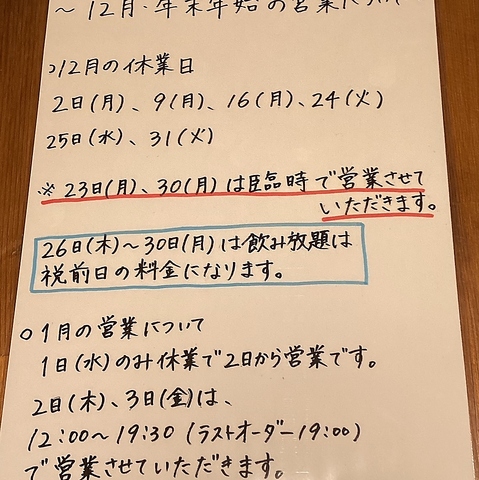 ～12月・年末年始の営業について
○12月の休業日
2日(月)、9(月)、16(月)、24(火)
25日(水)、31(火)
※23日(月)、30(月)は臨時で営業させて
いただきます。
26日(木)～30日(月)は飲み放題は
祝前日の料金になります。
○1月の営業について
1日(水)のみ休業で2日から営業です。
2日(木)、3日(金)は、
12:00～19:30 (ラストオーダー19:00)
で営業させていただきます。